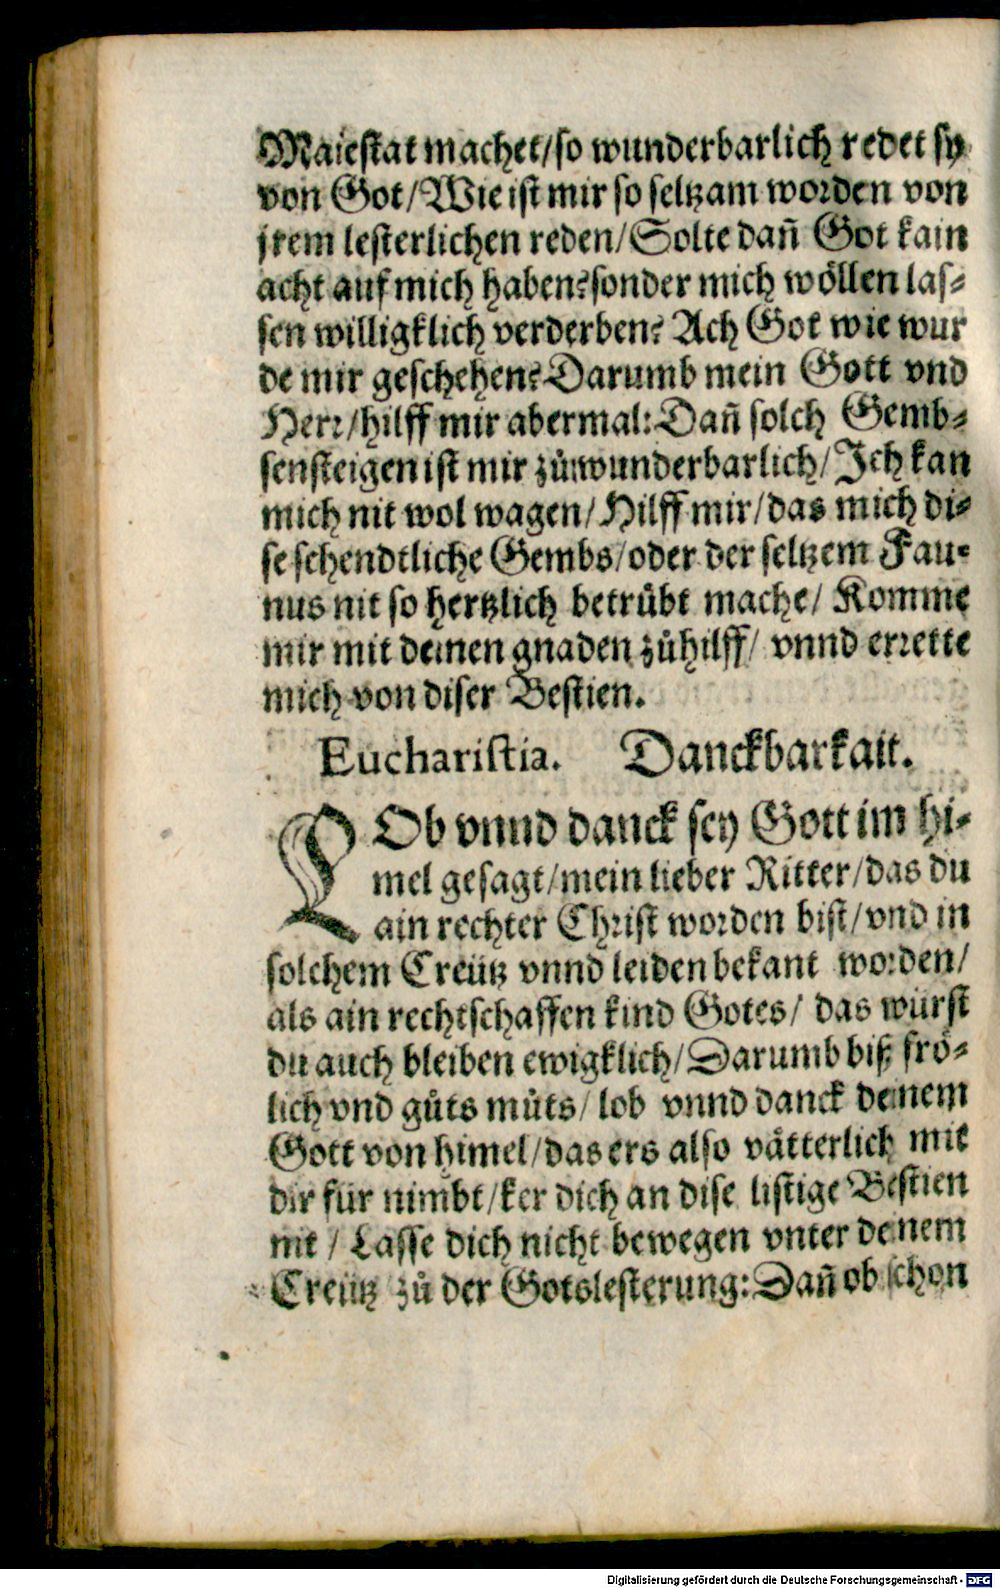 Maiestat machet/so wunderbarlich redet sy
von Got/Wie ist mir so seltzam worden von
jrem lesterlichen reden/Solte dañ Got kain
acht auf mich haben?sonder mich wöllen las-
sen willigklich verderben? Ach Got wie wur
de mir geschehen?Darumb mein Gott vnd
Herr/hilff mir abermal:Dañ solch Gemb-
sensteigen ist mir zů wunderbarlich/Ich kan
mich nit wol wagen/Hilff mir/das mich di-
se schendtliche Gembs/oder der seltzem Fau-
nus nit so hertzlich betrůbt mache/ Komme
mir mit deinen gnaden zůhilff/ vnnd errette
mich von diser Bestien.
Eucharistia. Danckbarkait.
LOb vnnd danck sey Gott im hi-
mel gesagt/mein lieber Ritter/das du
ain rechter Christ worden bist/vnd in
solchem Creütz vnnd leiden bekant worden/
als ain rechtschaffen kind Gotes/ das würst
du auch bleiben ewigklich/Darumb biß frö-
lich vnd gůts můts/ lob vnnd danck deinem
Gott von himel/das ers also vätterlich mit
dir für nimbt/ker dich an dise listige Bestien
nit / Lasse dich nicht bewegen vnter deinem
Creütz zů der Gotslesterung:Dañ ob schon
Digitalisierung gefördert durch die Deutsche Forschungsgemeinschaft - DFG